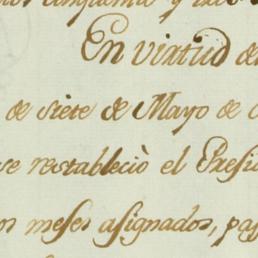 cinquenta y
En virtud de
de siete de Mayo de
se restableciò el Presi
os meses asignados, pas